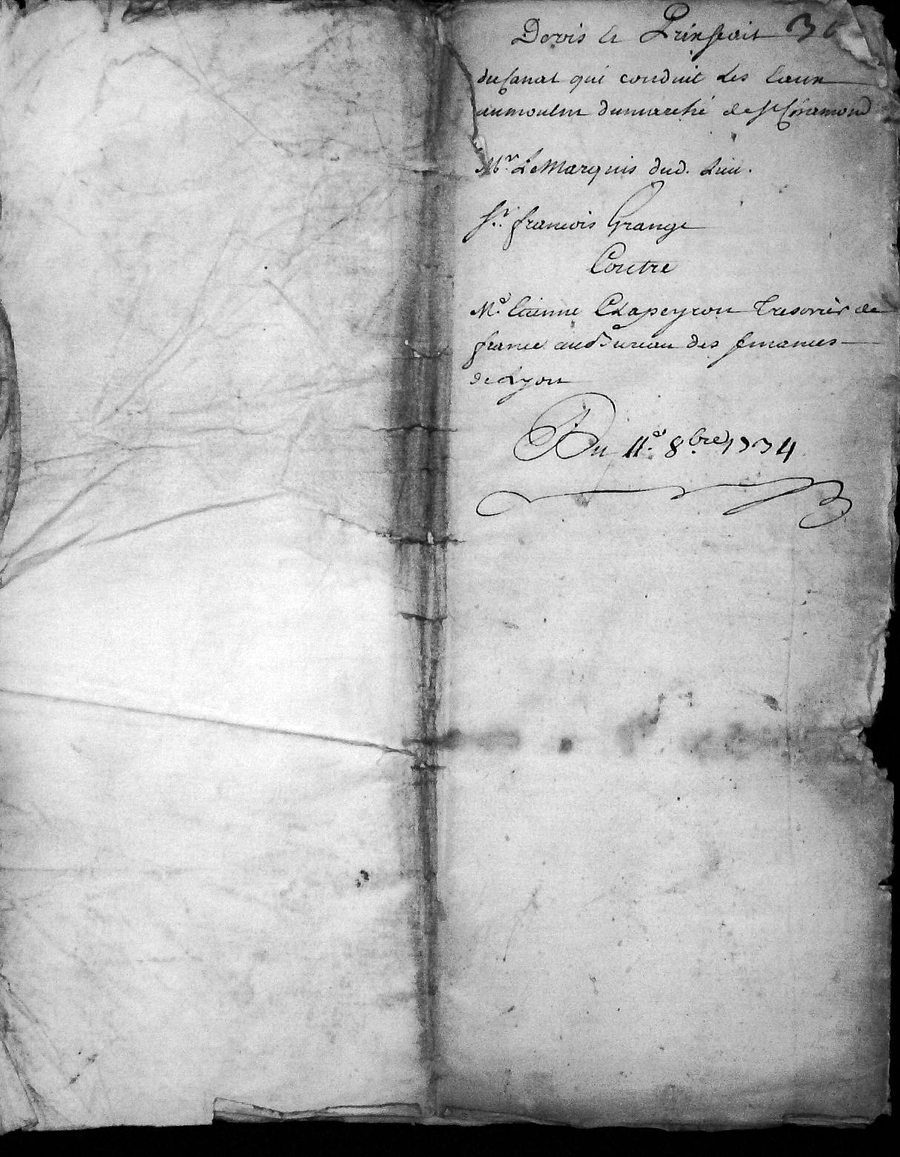 Devis et Prixfait 36
du Canal qui conduit les Eaux
au moulin du marché de St Chamond
Mr. Le Marquis dud. Lieu.
Sr. francois Grange
Contre
Me. Etienne Chapeyron Tresorier de
france au Bureau des finances
de Lyon
Du 11e. 8bre. 1734